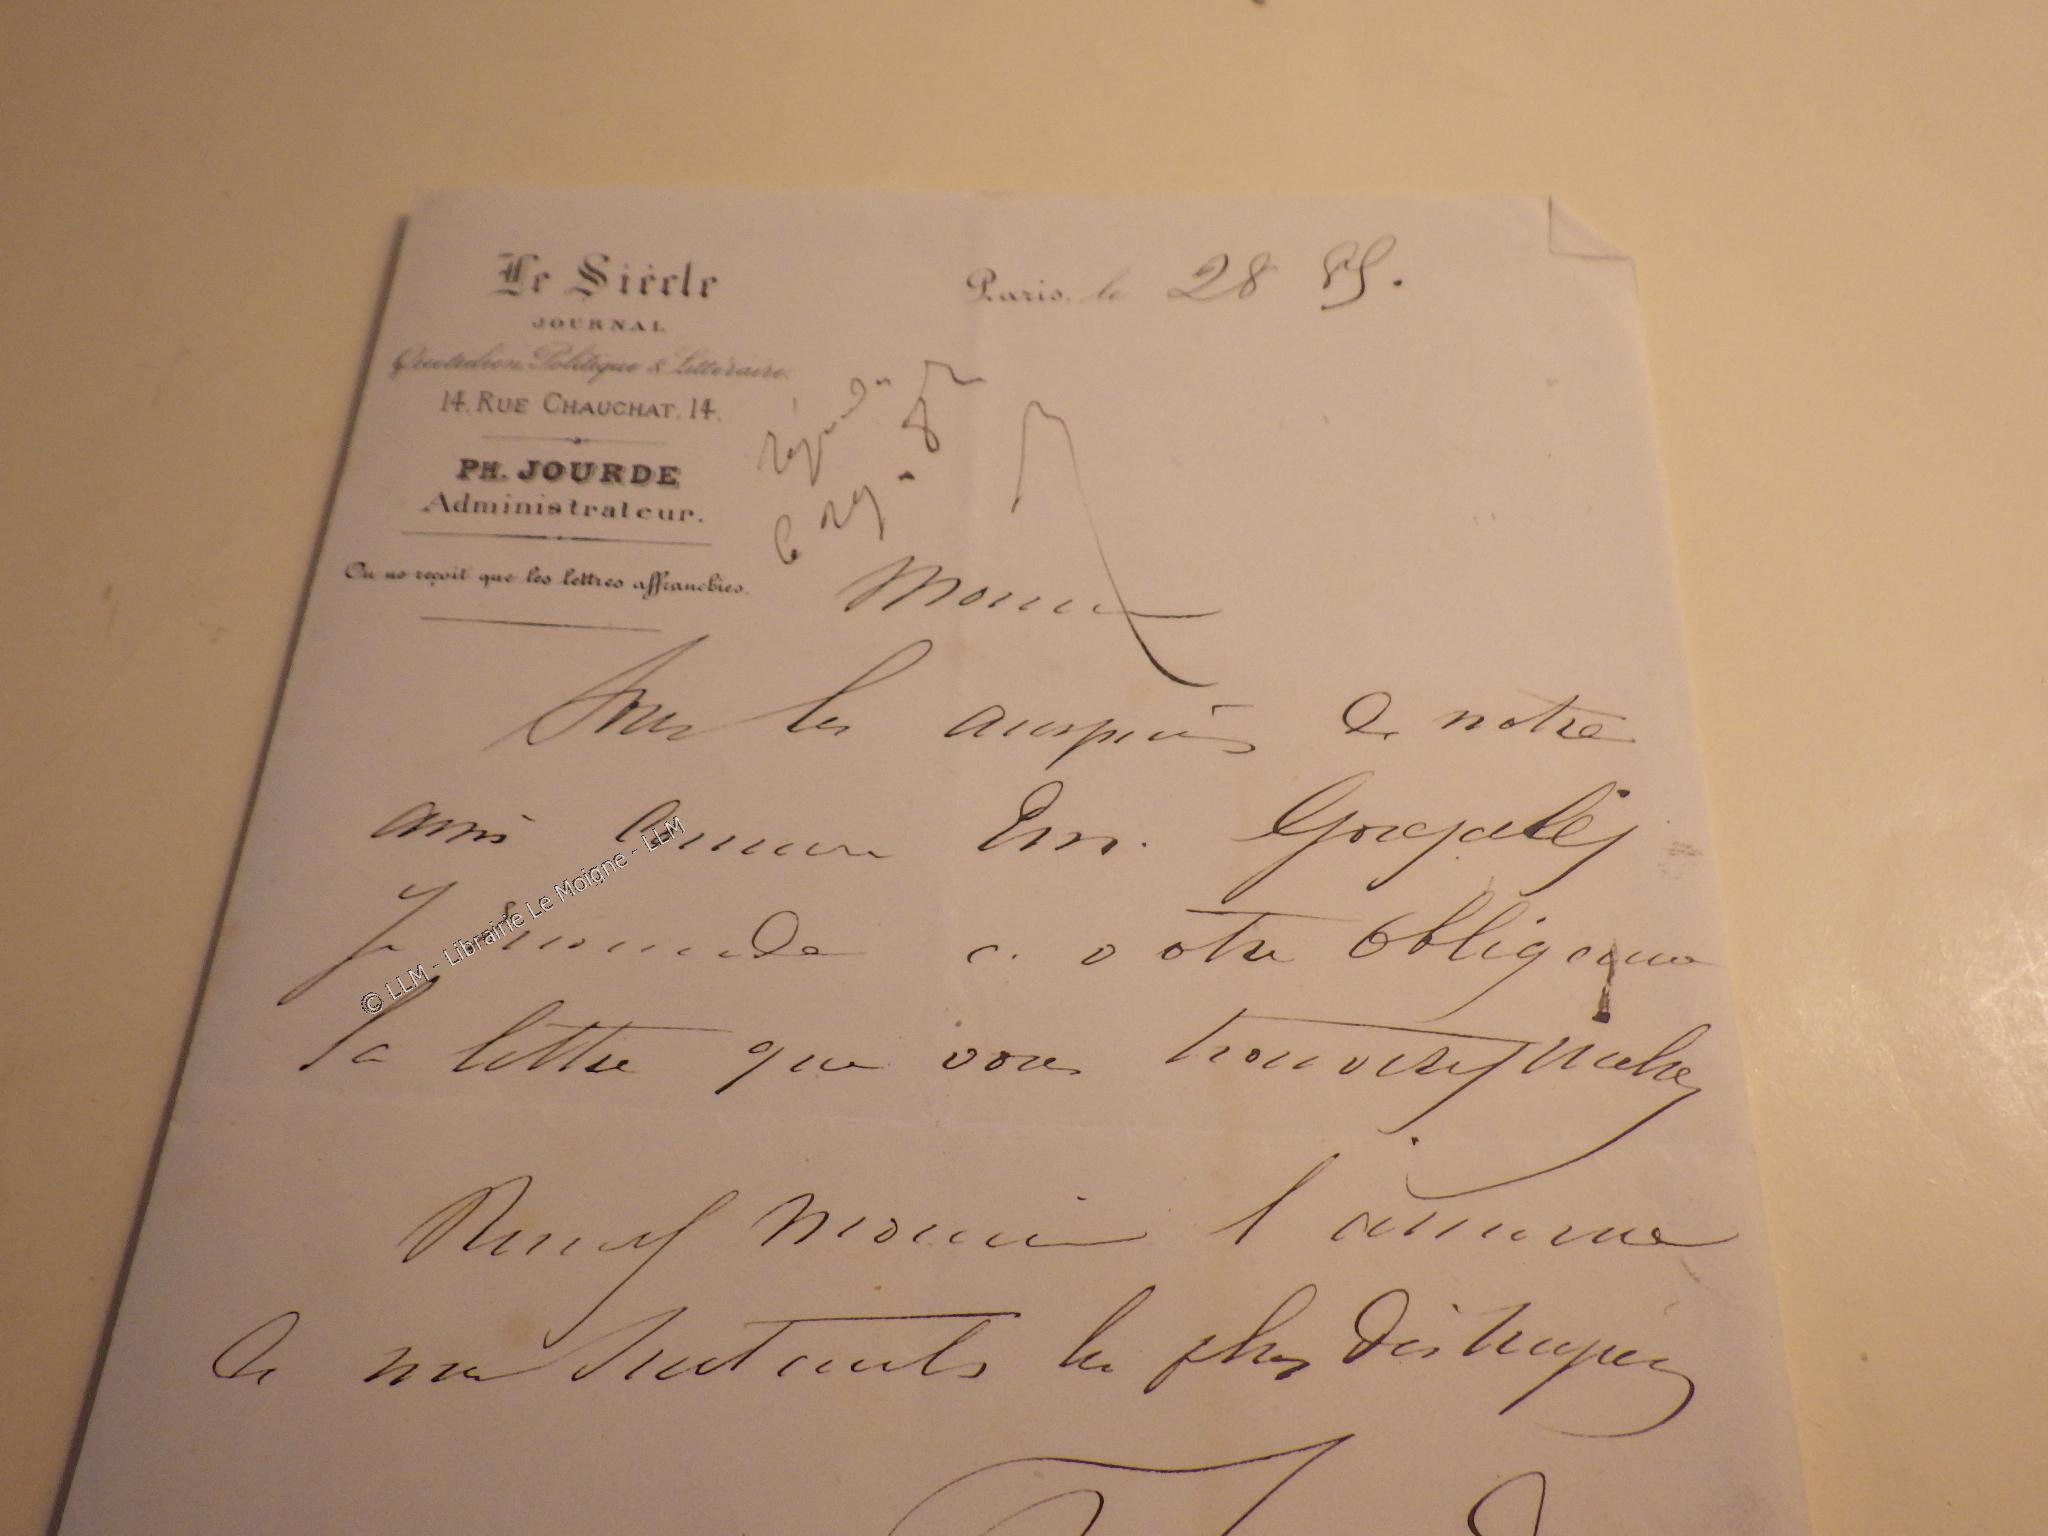 Le Siècle
JOURNAL
Quotidien, Politique & Littéraire.
14, RUE CHAUCHAT, 14.
PH. JOURDE
Administrateur.
On ne reçoit que les lettres affranchies.
Paris, le 28
Monsieur
Sous les auspices de notre
ami commun Em. Gonzalès
Je recommande à votre obligeance
la lettre que vous trouverez incluse
Recevez Monsieur l'assurance
de mes sentiments les plus distingués
© LLM - Librairie Le Moigne - LLM